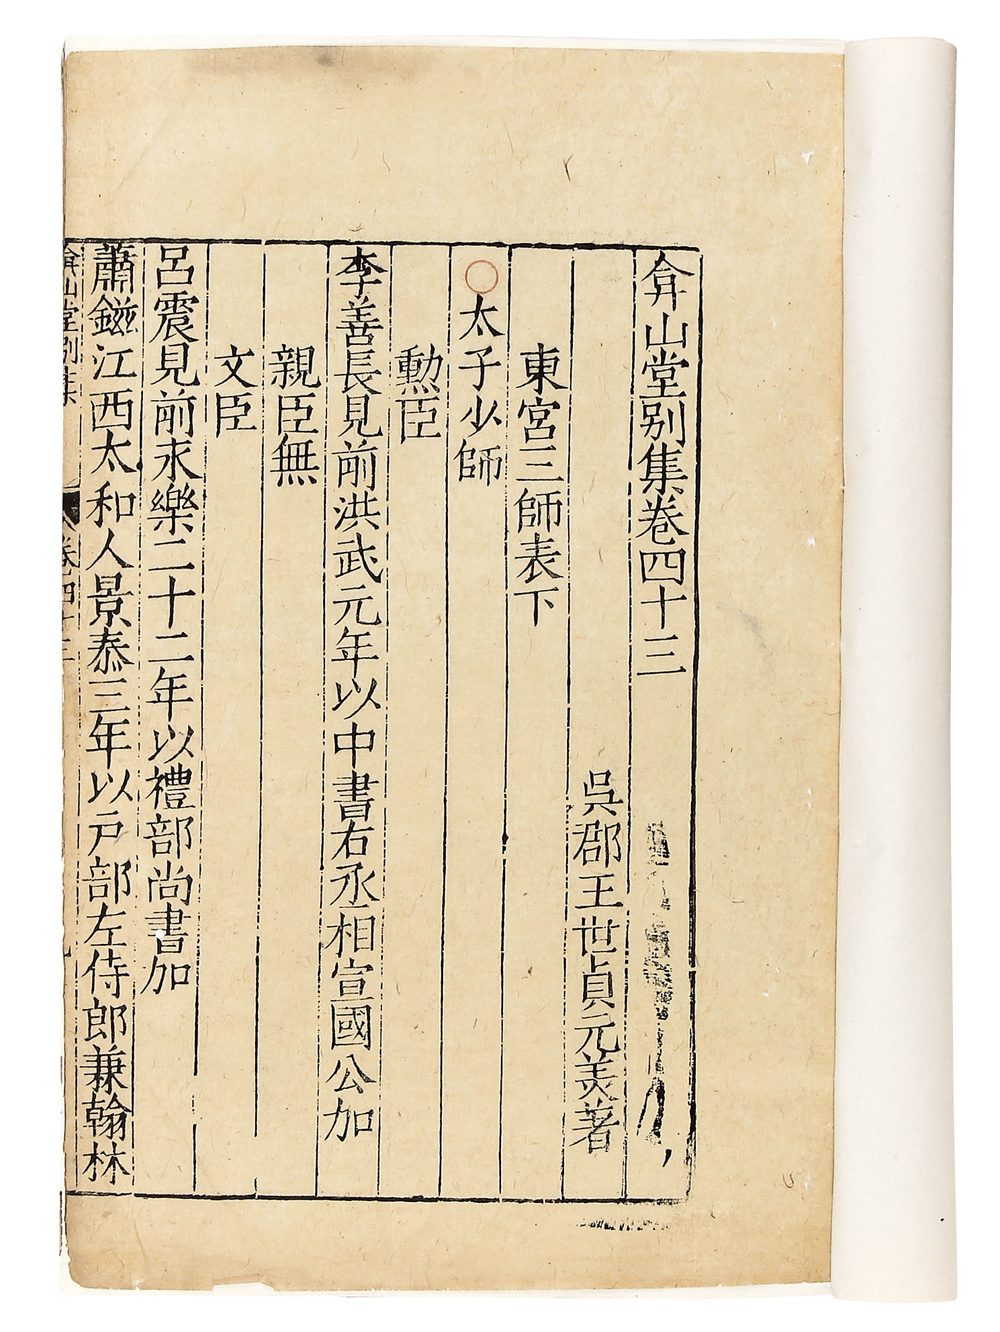 弇山堂别集卷四十三
吳郡王世貞元美著
東宮三師表下
太子少師
勳臣
李善長見前洪武元年以中書右丞相宣國公加
親臣無
文臣
呂震見前永樂二十二年以禮部尚書加
蕭鎡江西太和人景泰三年以戸部左侍郎兼翰林
弇山堂别集 卷四十三